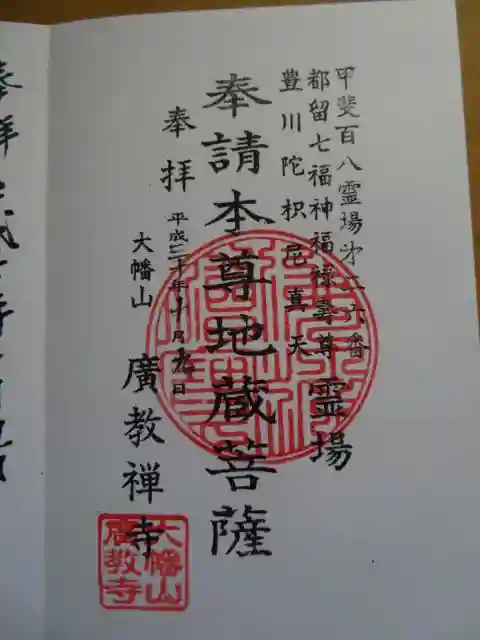 甲斐百八霊場第二六番
都留七福神福禄寿尊 霊場
豊川陀枳尼真天
奉請本尊地蔵菩薩
奉拝 平成二十年十月九日
大幡山 廣教禅寺
大幡山
廣教寺